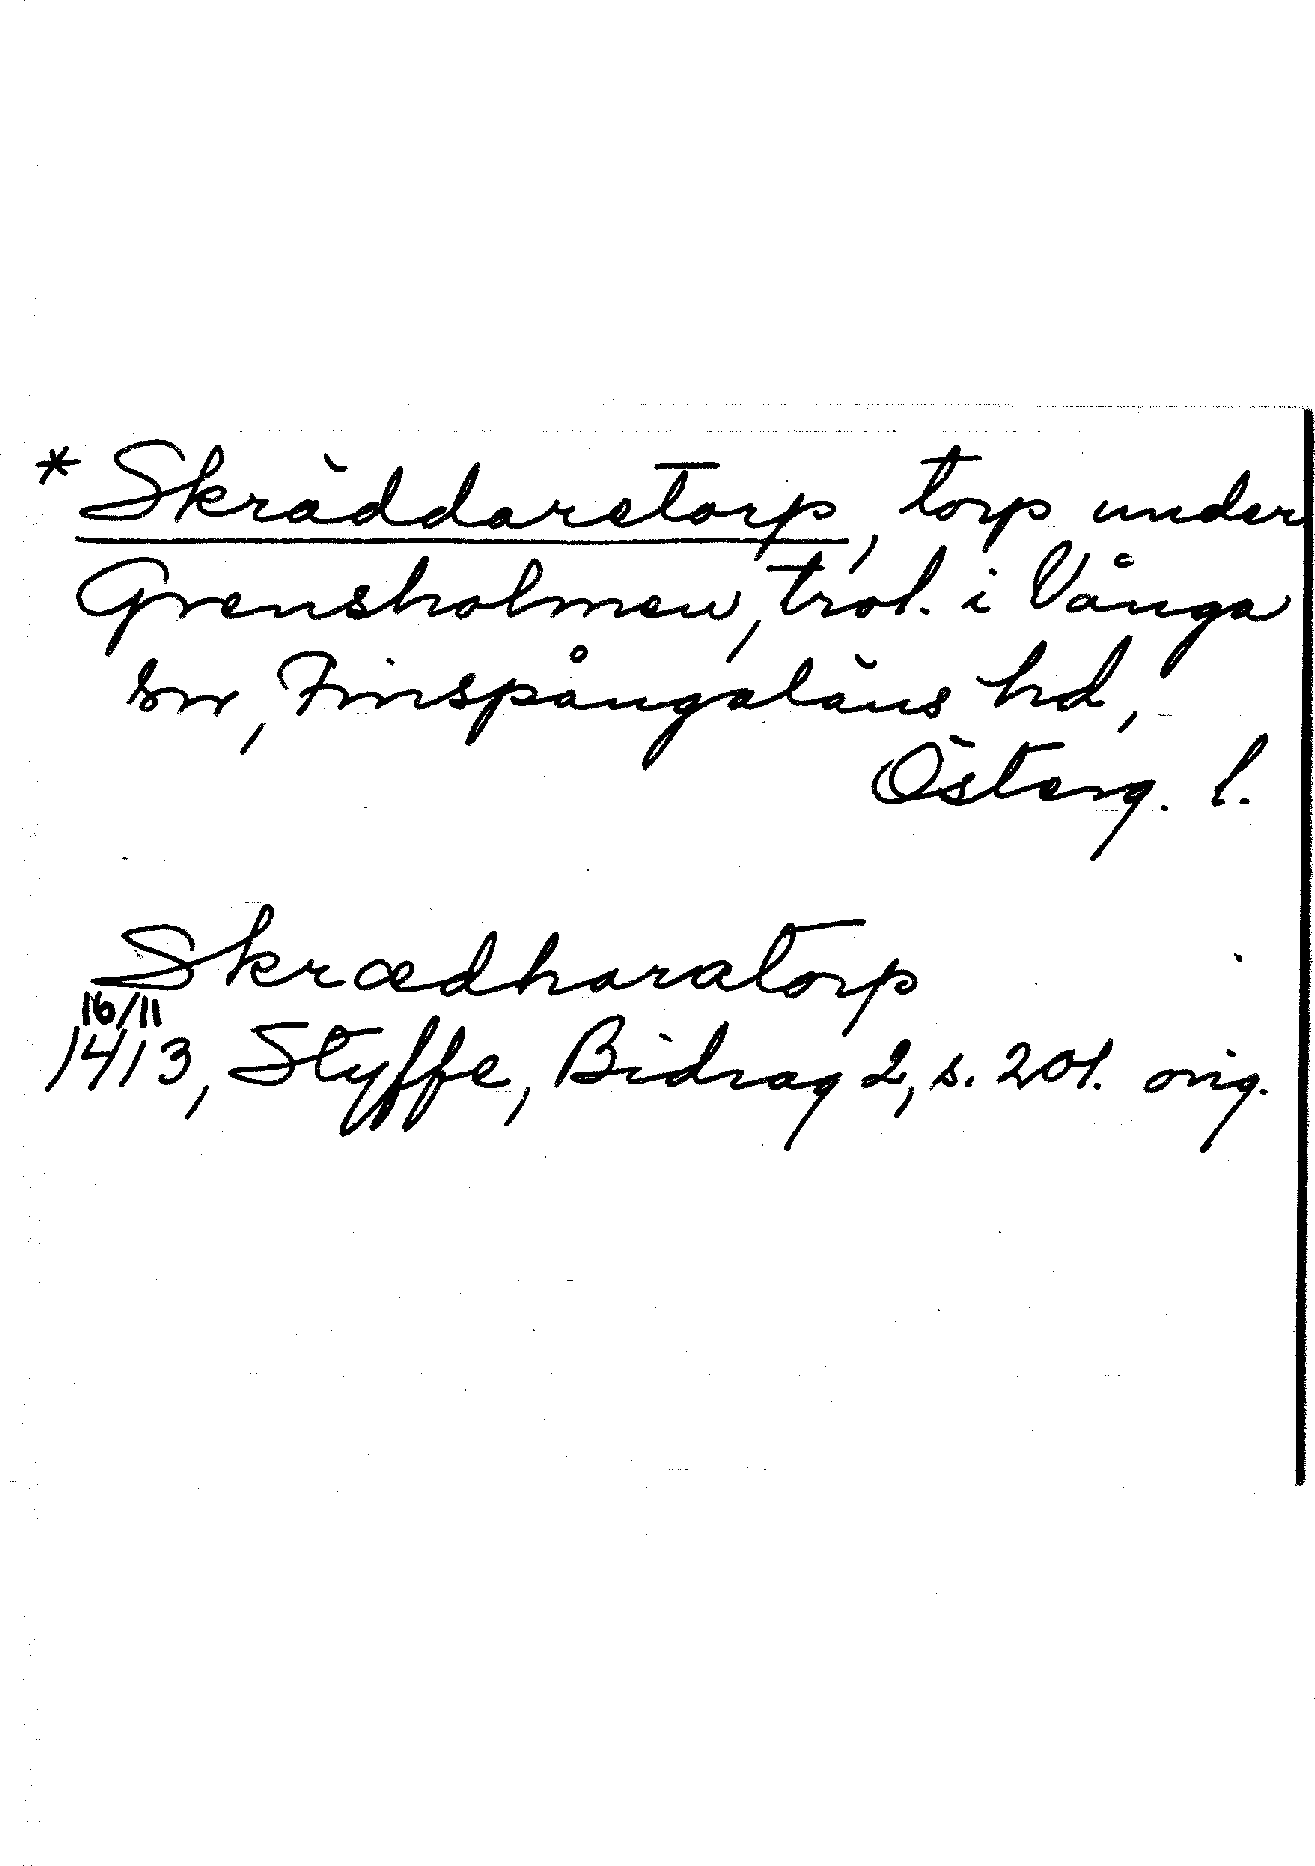 * Skräddaretorp, torp under
Grensholmen, trol. i Vånga
sn, Finspångaläns hd,
Österg. l.
Skrædharatorp
16/11
1413, Styffe, Bidrag 2, s. 201. orig.